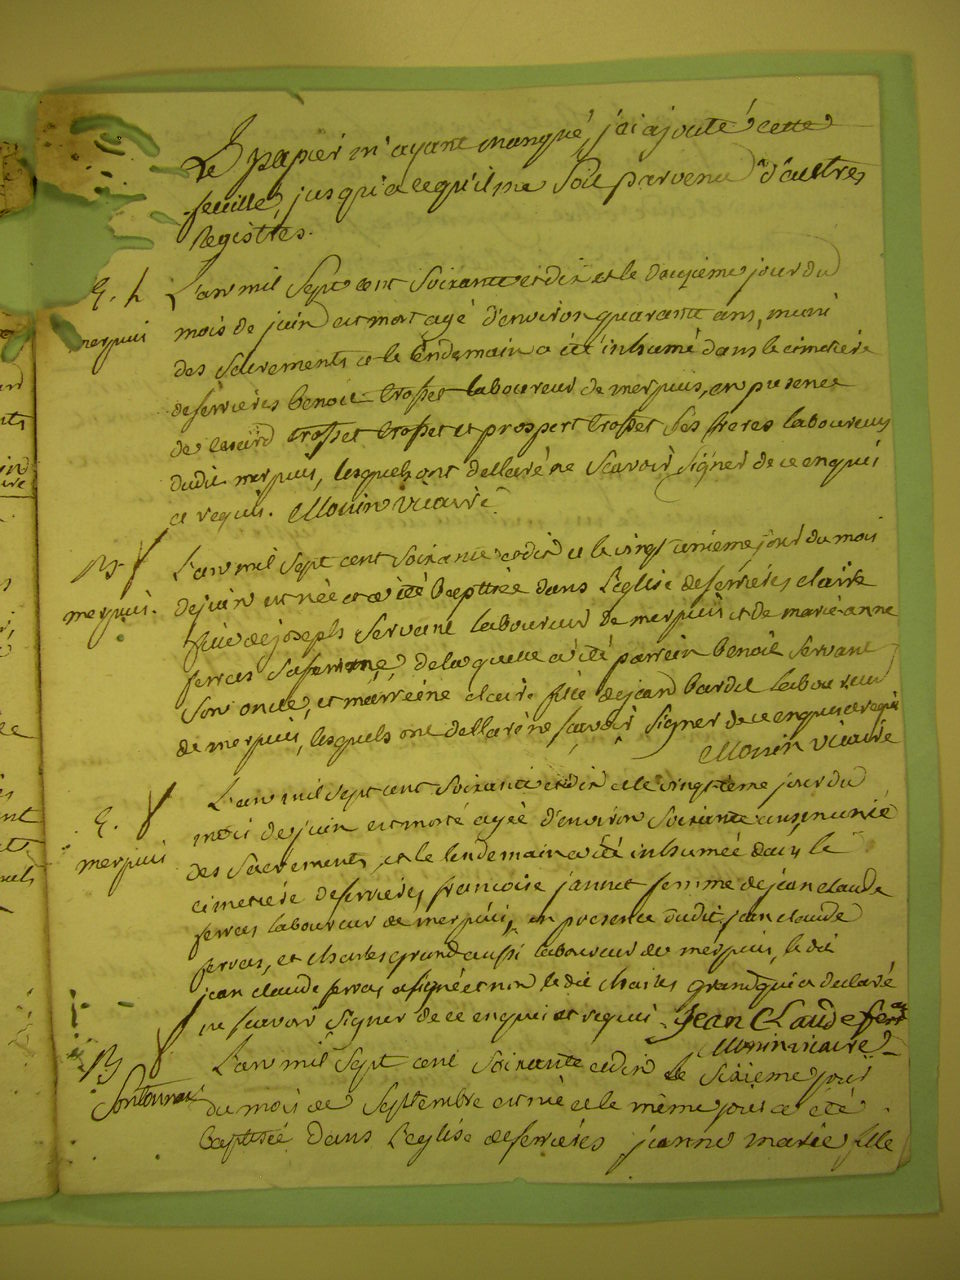 Le papier m'ayant manqué, j'ai ajouté cette
feuille, jusqu'a cequ'il me soit parvenu d'autres
Registres.
E. h
merpuis
L'an mil sept cent soixante et dix et le douzième jour du
mois de juin est mort agé d'environ quarante ans, muni
des sacrements et le lendemain a été inhumé dans le cimetière
deferrières benoit trosset laboureur de merpuis, en presence
de trosset et prospert trosset ses freres laboureurs
dudit merpuis, lesquels ont declaré ne scavoir signer de ce enquis
et requis. Monin vicaire
B
merpuis.
L'an mil sept cent soixante et dix et le vingt unieme jour du mois
de juin est née et a été baptisée dans l'eglise deferrières claire
fille de joseph servant laboureur de merpuis et de marie anne
ferras sa femme, de laquelle a été parrein benoit servant
son oncle, et marreine claire fille de jean bardet laboureur
de merpuis, lesquels ont declaré ne scavoir signer de ce enquis et requis
Monin vicaire
E.
merpuis
L'an mil sept cent soixante et dix et le vingtieme jour du
mois de juin est morte agée d'environ soixante ans munie
des sacrements, et le lendemain a été inhumée dans le
cimetière deferrières francoise jannet femme de jean claude
ferras laboureur de merpuis, en presence dudit jean claude
ferras, et charles grand aussi laboureur de merpuis, le dit
jean claude ferras a signé et non le dit charles grand qui a declaré
ne scavoir signer de ce enquis et requis. Jean Claude feras
Monin vicaire
B
L'an mil sept cent soixante et dix le sixieme jour
du mois de septembre est née et le même jour a été
baptisée dans l'eglise deferrières jeanne marie fille